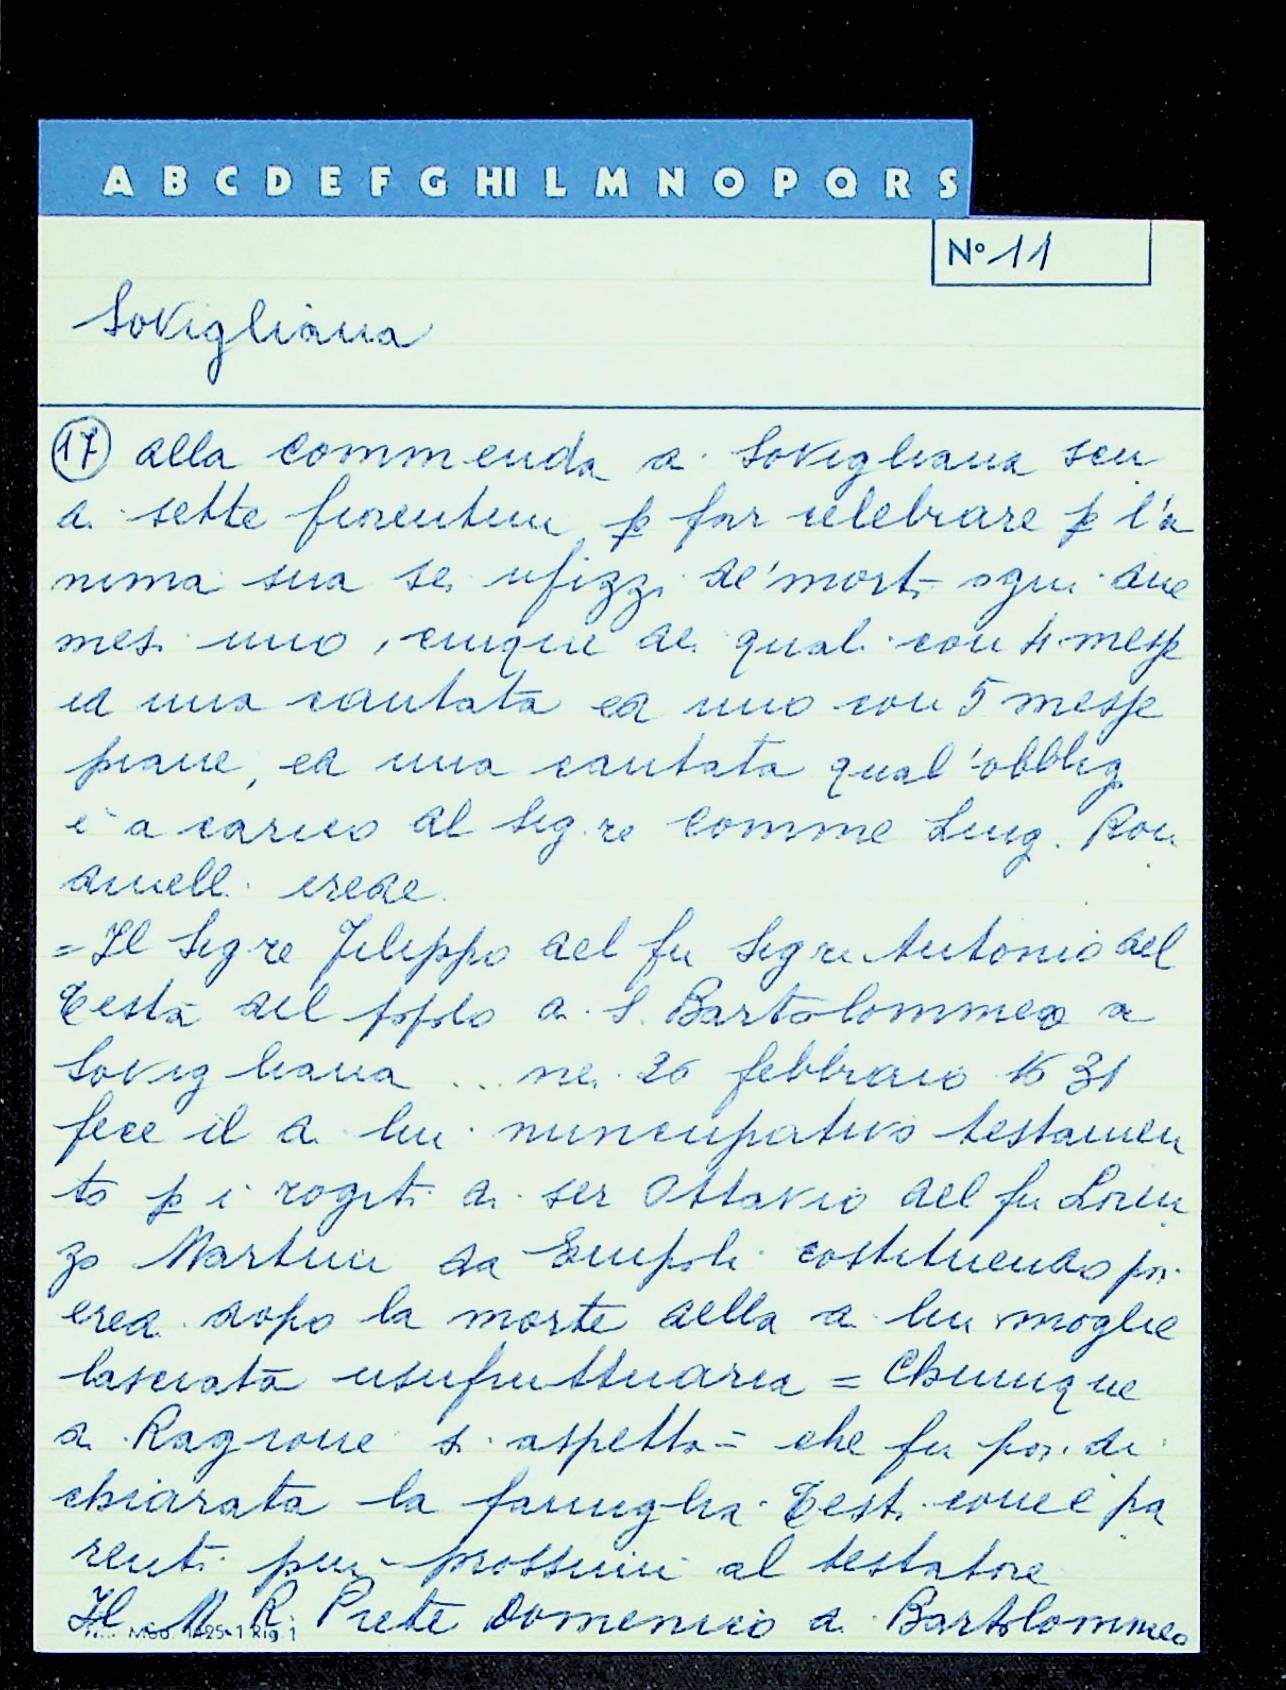 A B C D E F G HI L M N O P Q R S
N° 11
Sovigliana
17 alla commenda di Sovigliana scu
di sette fiorentini p far celebrare p l'a
nima sua sei ufizzi de' morti ogni due
mesi uno, cinque de quali con 4 messe
ed una cantata ed uno con 5 messe
piane, ed una cantata qual'obblig
è a carico del Sig.re Comme Luig. Ron
dinelli erede.
= Il Sig re Filippo del fu Sig re Antonio del
Testa del popolo di S. Bartolommeo a
Sovigliana ... ne. 26 febbraio 1631
fece il di lui nuncupativo testamen
to p i rogiti di ser Ottavio del fu Loren
zo Martini da Empoli costituendo poi
eredi dopo la morte della di lui moglie
lasciata usufruttuaria = Chiunque
di Ragione si aspetta = che fu poi di
chiarata la famiglia Testi come pa
renti piu prossimi al testatore
Il M. R. Prete Domenico di Bartolommeo